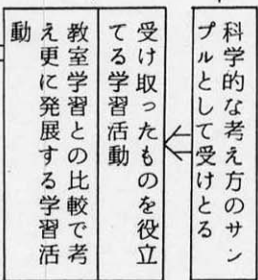 科学的な考え方のサン
プルとして受けとる
受け取ったものを役立
てる学習活動
教室学習との比較で考
え更に発展する学習活
動